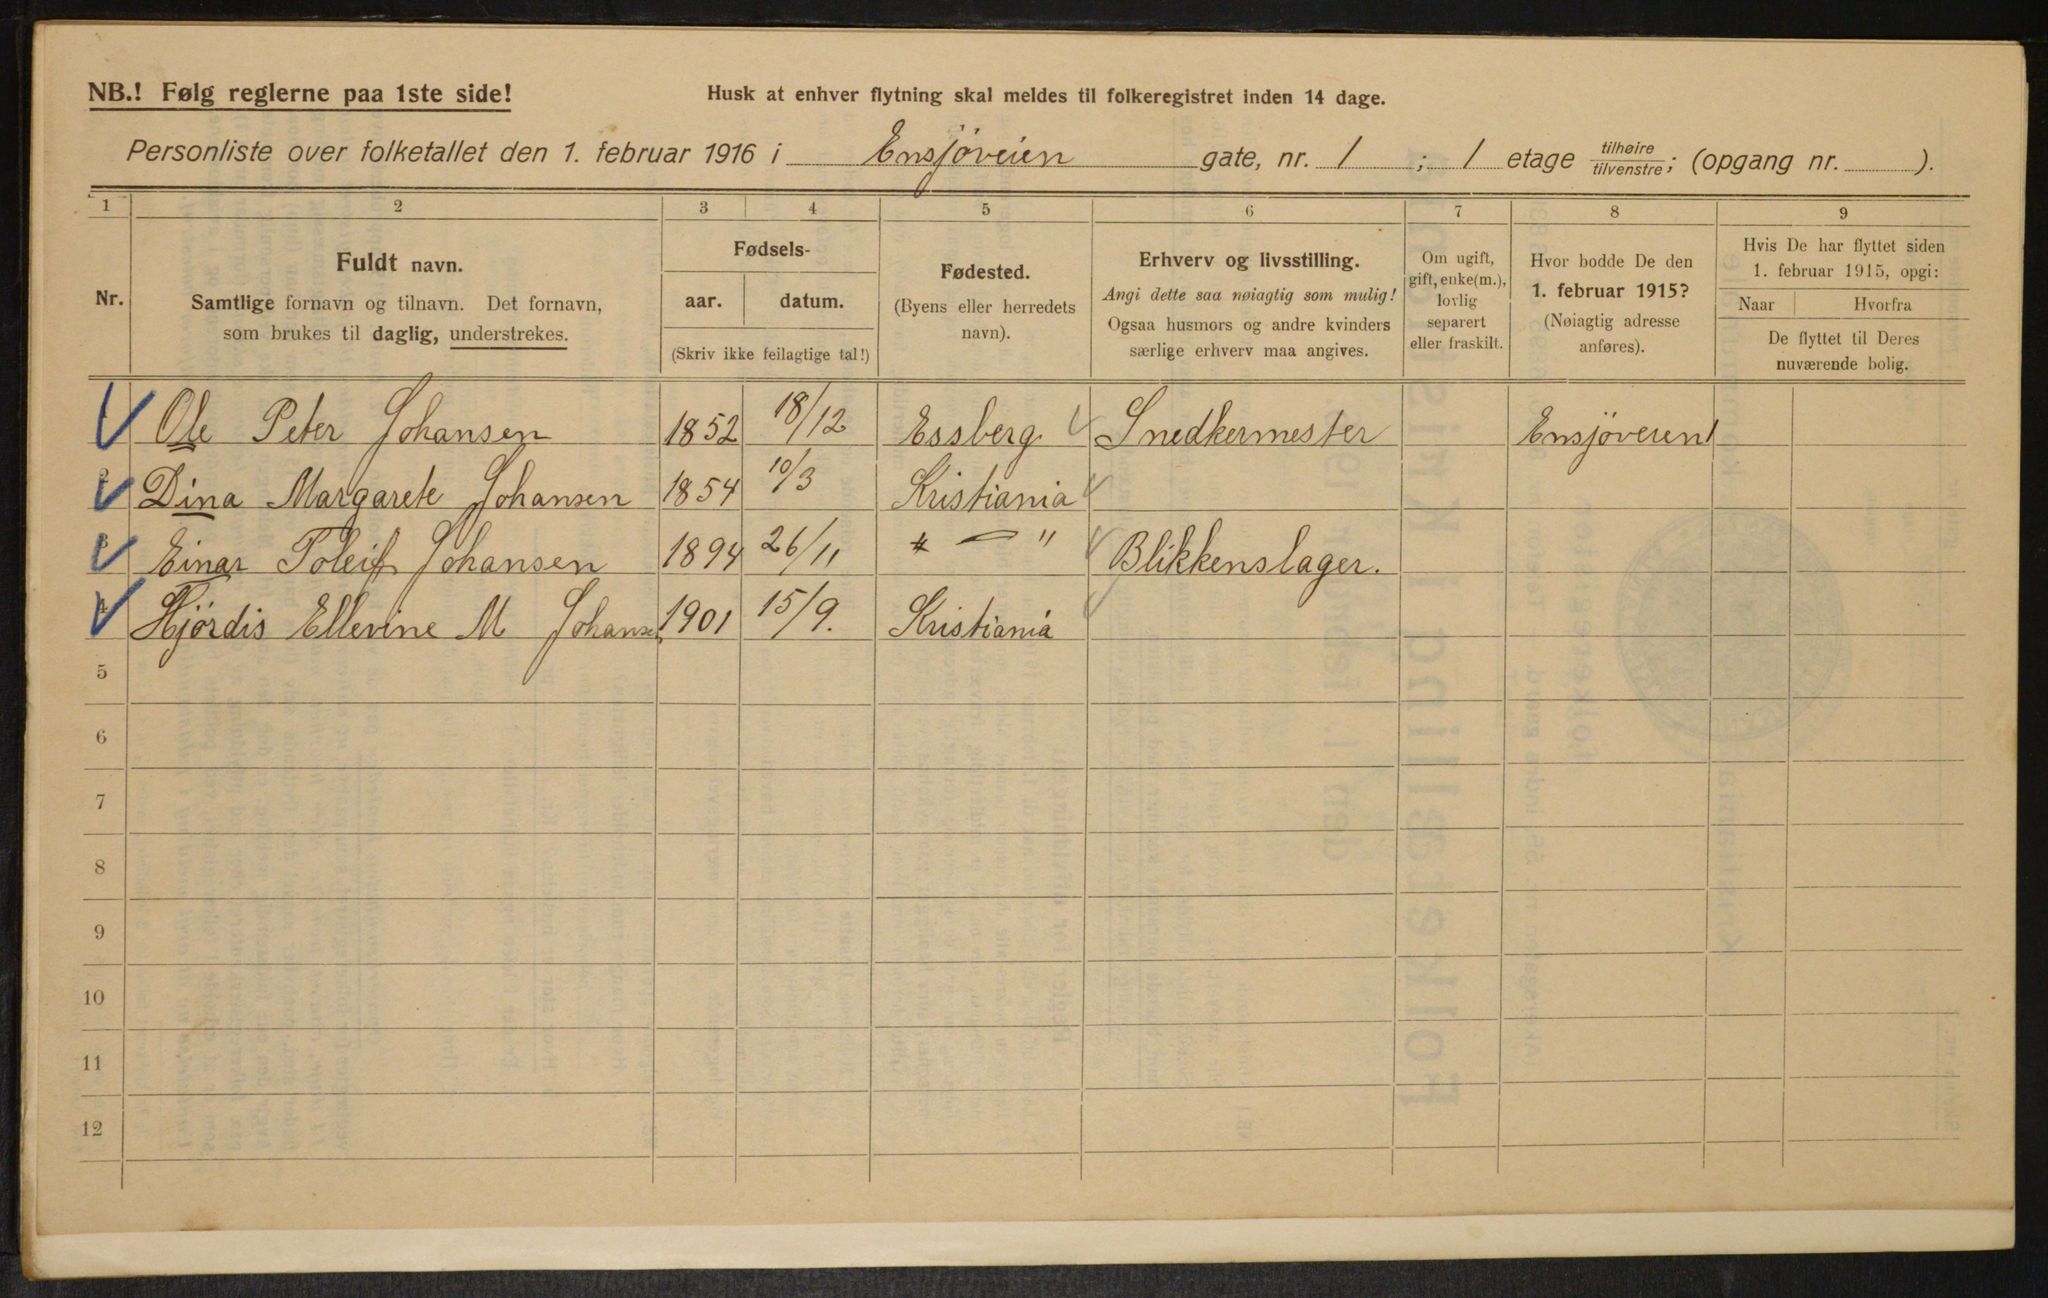 NB.! Følg reglerne paa 1ste side!
Husk at enhver flytning skal meldes til folkeregistret inden 14 dage.
Personliste over folketallet den 1. februar 1916 i Ensjöveien gate, nr. 1 ; 1 etage tilhøire/tilvenstre; (opgang nr. ).
1 2 3 4 5 6 7 8 9
Nr.
Fuldt navn.
Samtlige fornavn og tilnavn. Det fornavn,
som brukes til daglig, understrekes.
Fødsels-
aar. datum.
(Skriv ikke feilagtige tal!)
Fødested.
(Byens eller herredets
navn).
Erhverv og livsstilling.
Angi dette saa nøiagtig som mulig!
Ogsaa husmors og andre kvinders
særlige erhverv maa angives.
Om ugift,
gift, enke(m.),
lovlig
separert
eller fraskilt.
Hvor bodde De den
1. februar 1915?
(Nøiagtig adresse
anføres).
Hvis De har flyttet siden
1. februar 1915, opgi:
Naar Hvorfra
De flyttet til Deres
nuværende bolig.
Ole Peter Johansen 1852 18/12 Essberg Snedkermester Ensjöveien 1
Dina Margarete Johansen 1854 10/3 Kristiania
Einar Toleif Johansen 1894 26/11 " — " Blikkenslager.
Hjørdis Ellevine M Johansen 1901 15/9. Kristiania
5
6
7
8
9
10
11
12